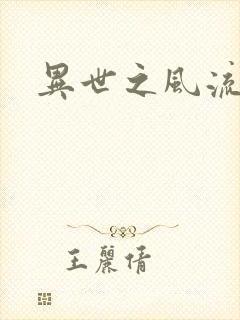 異世之風流
王麗倩